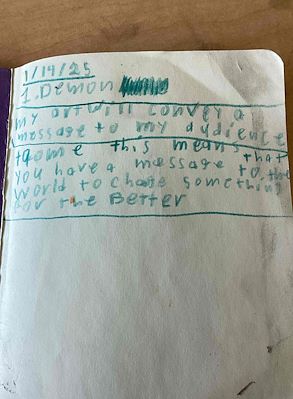 1/14/25
1. Demon
my art will convey a
message to my audience
to me this means that
you have a message to the
world to chage something
for the Better